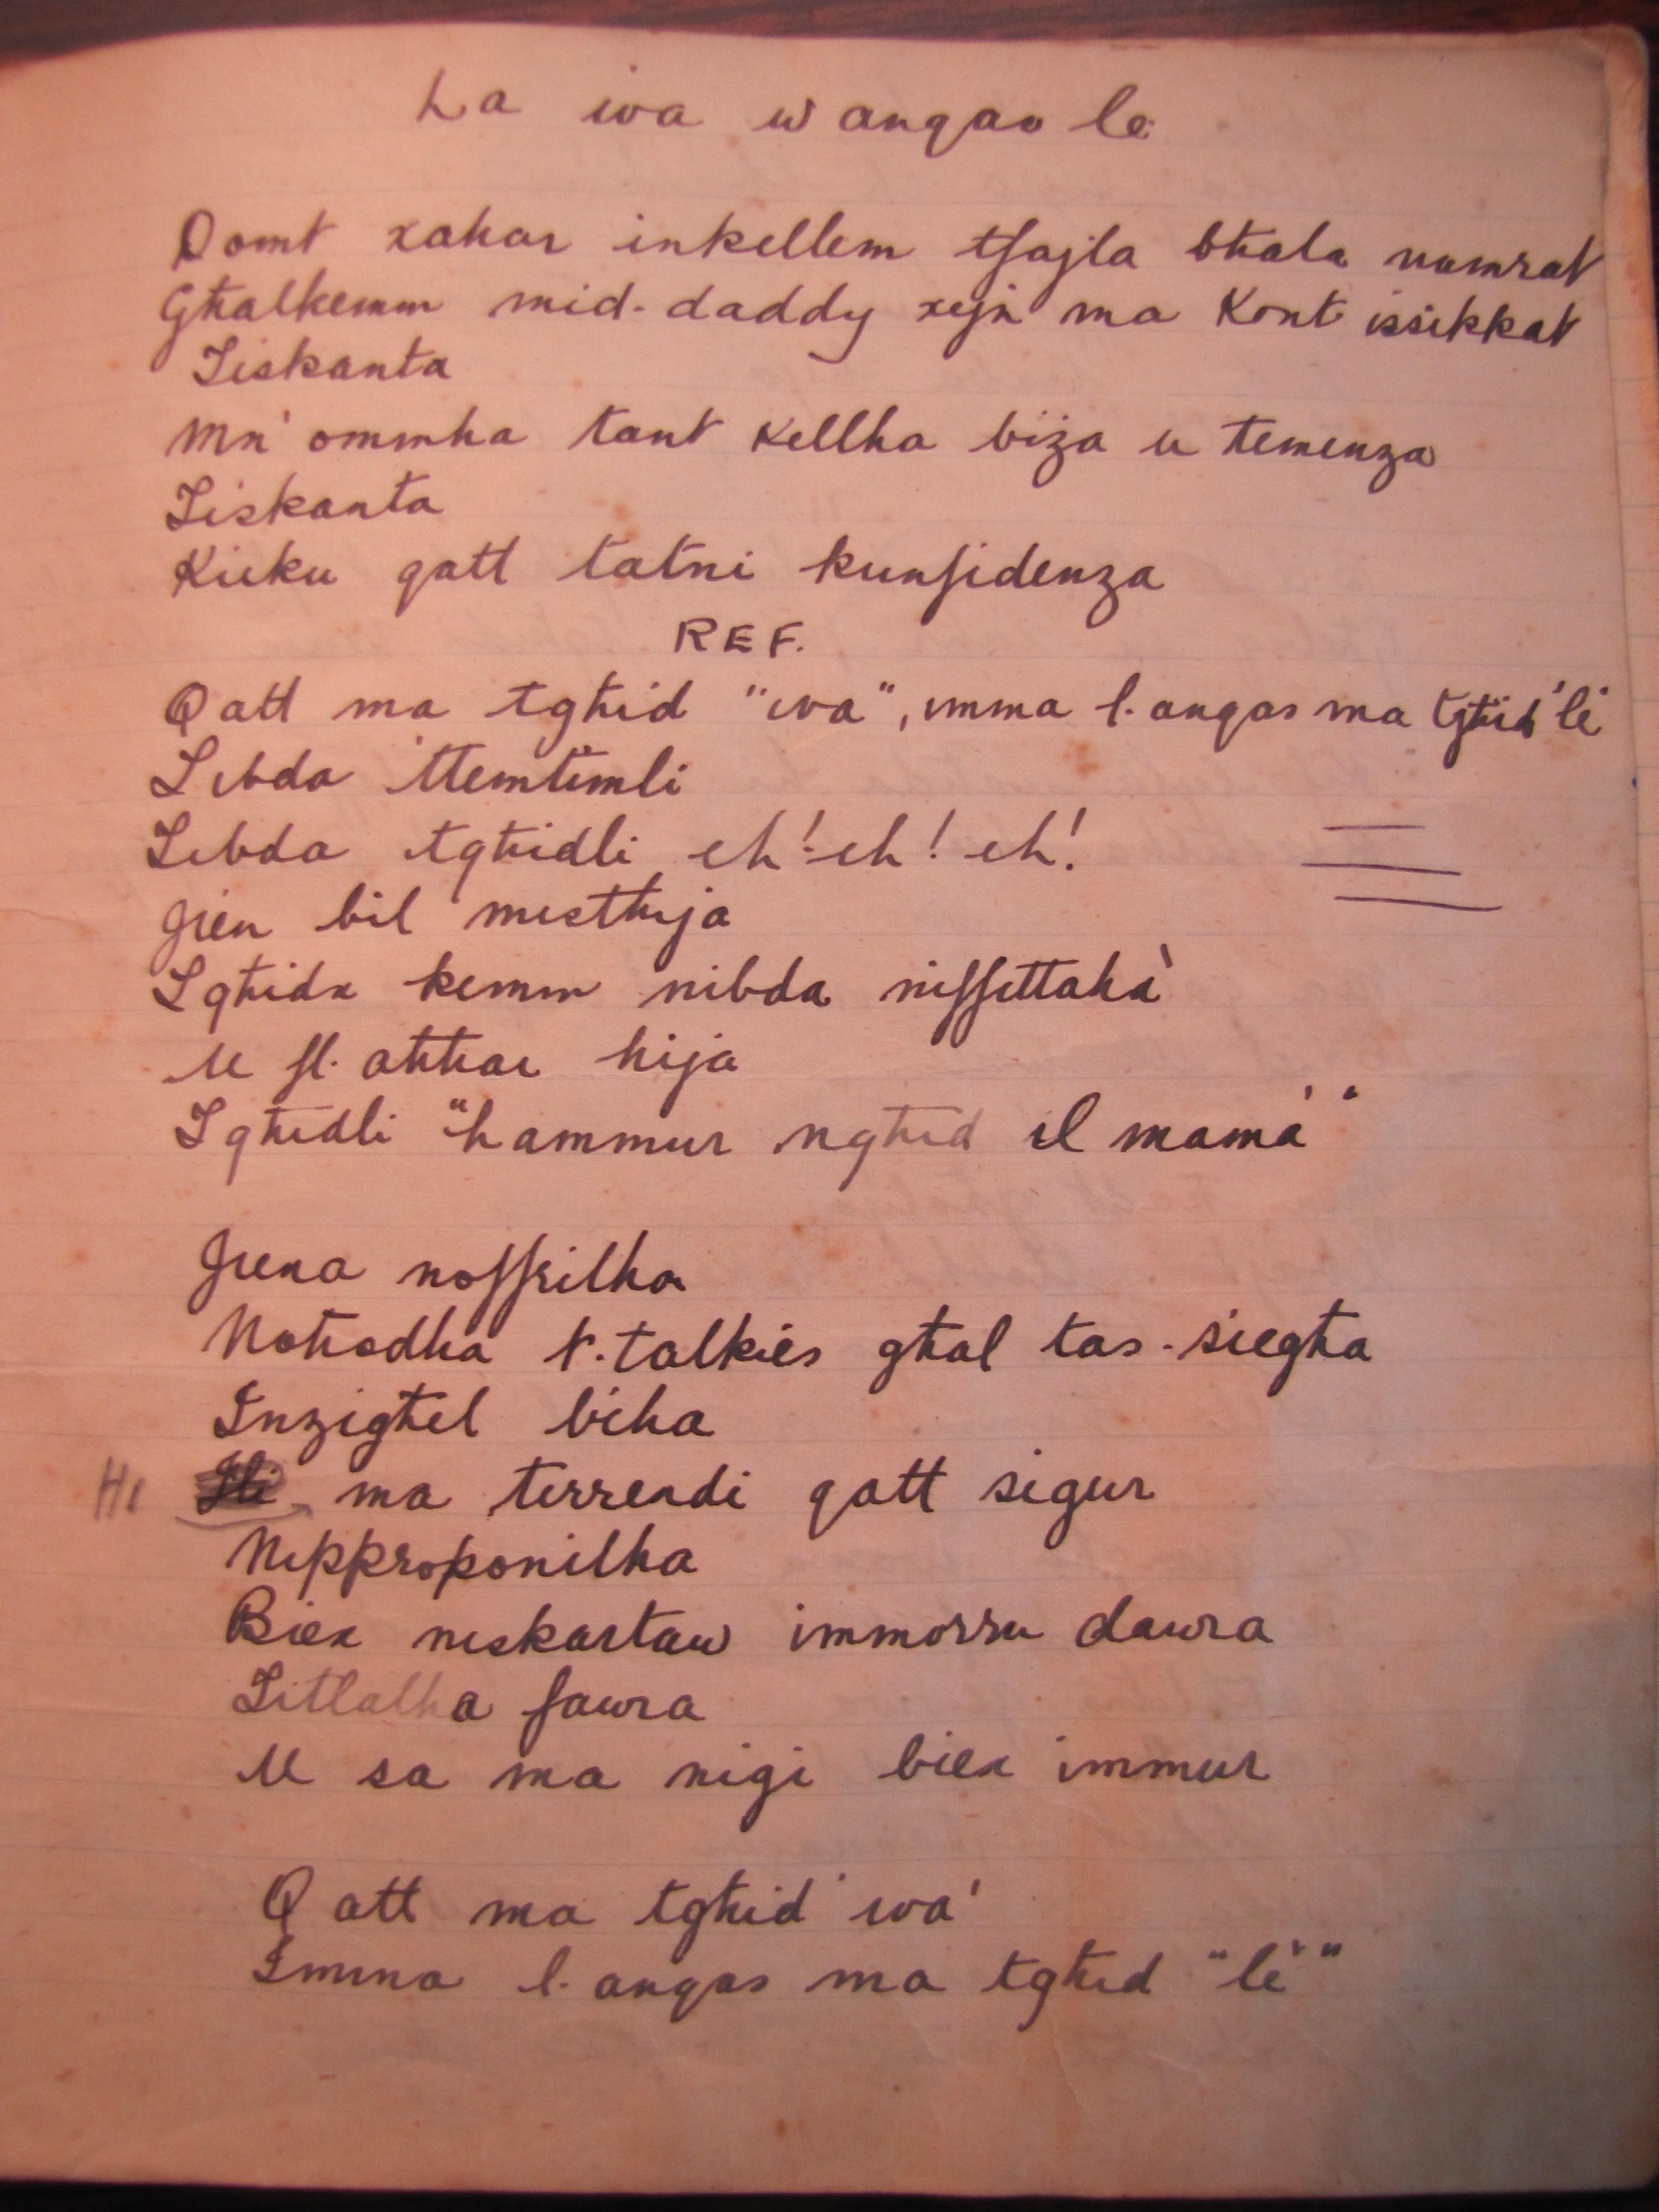 La iva w anqas le
Domt xahar inkellem tfajla bħala namrat
Għalkemm mid-daddy xejn ma Kont issikkat
Tiskanta
Mn' ommha tant kellha biża u temenza
Tiskanta
Kieku qatt tatni kunfidenza
REF.
Qatt ma tgħid "iva", imma l-anqas ma tgħid "le"
Tibda ttemtimli
Tibda tgħidli eh! eh! eh!
Jien bil mistħija
Ngħidx kemm nibda niffittahà
U fl-aħħar hija
Tgħidli "ħammur ngħid il mamà"
Jiena noffrilha
Noħodha t-talkies għal tas-siegħa
Inżigħel biha
Hi ma tirrendi qatt sigur
Nipproponilha
Biex niskartaw immorru dawra
Titlalha fawra
U sa ma niġi biex immur
Qatt ma tgħid 'iva'
Imma l-anqas ma tgħid "lè"